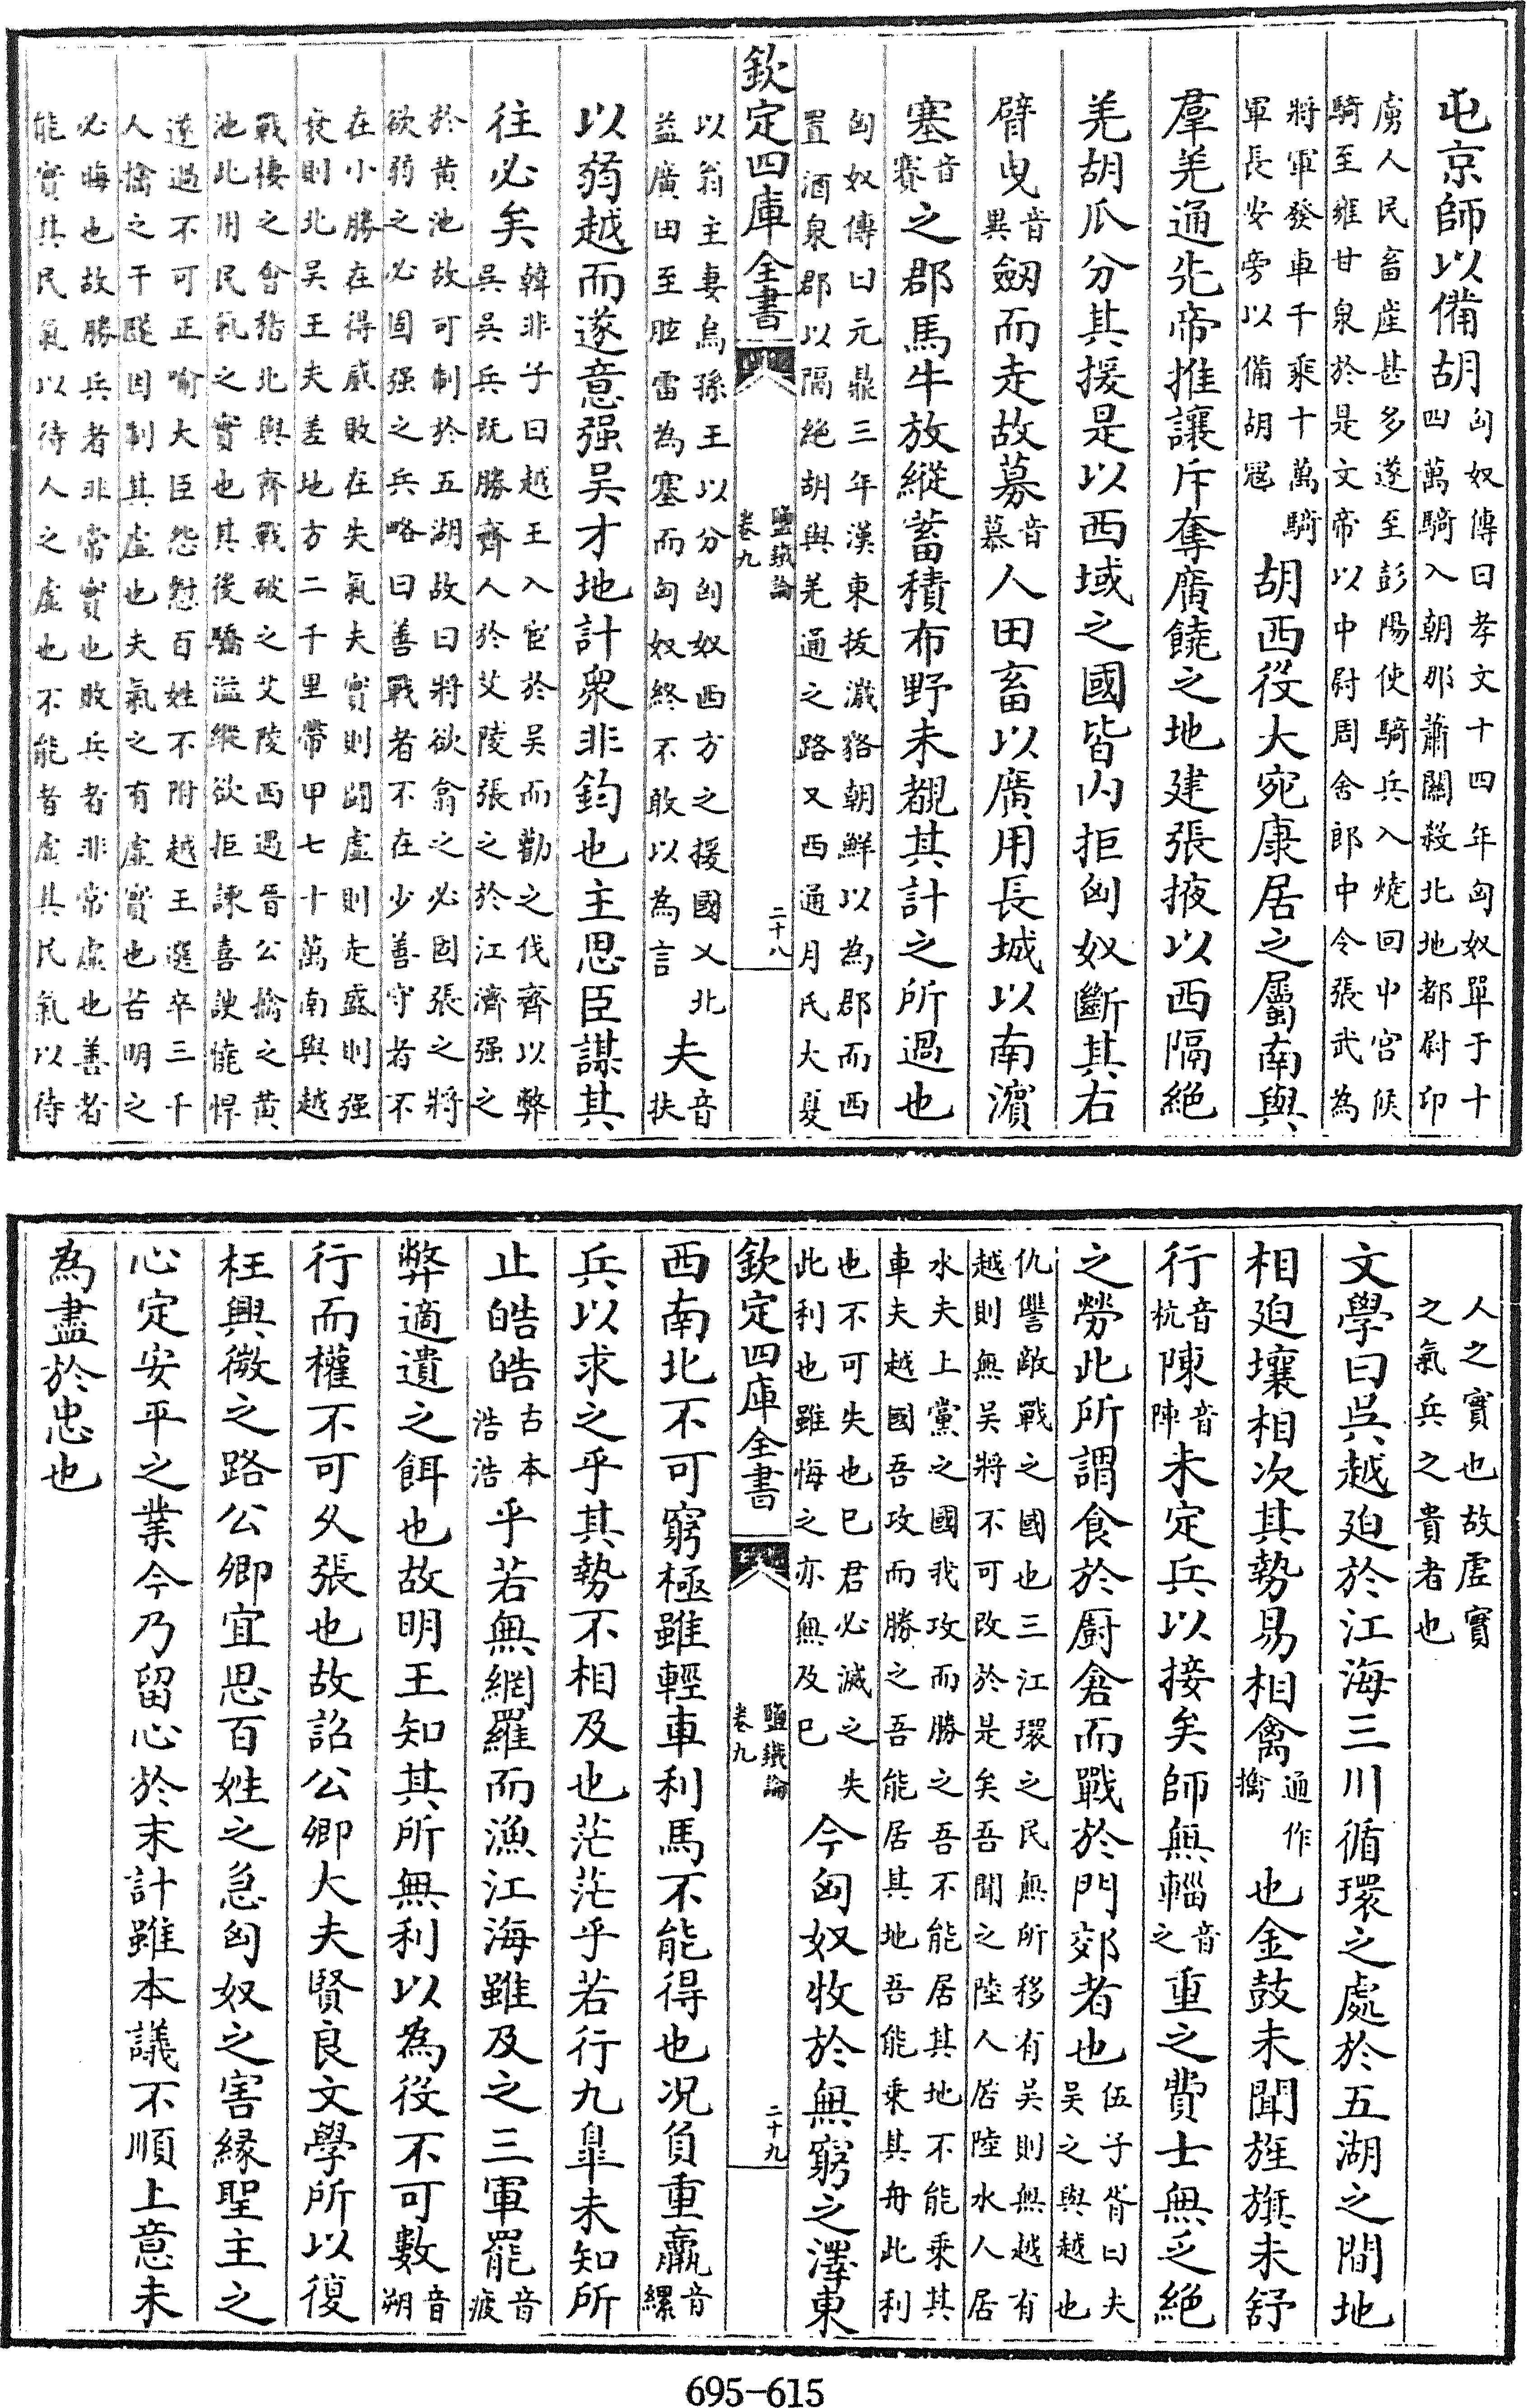 屯京師以備胡匈奴傳曰孝文十四年匈奴單于十四萬騎入朝那蕭關殺北地都尉卬
虜人民畜産甚多遂至彭陽使騎兵入燒回中宫候騎至雍甘泉於是文帝以中尉周舍郎中令張武為
將軍發車千乘十萬騎軍長安旁以備胡冦胡西役大宛康居之屬南與
羣羌通先帝推讓斥奪廣饒之地建張掖以西隔絶
羌胡瓜分其援是以西域之國皆内拒匈奴斷其右
臂曳音異劒而走故募音慕人田畜以廣用長城以南濵
塞音賽之郡馬牛放縱蓄積布野未覩其計之所過也
匈奴傳曰元鼎三年漢東拔濊貉朝鮮以為郡而西置酒泉郡以隔絶胡與羌通之路又西通月氏大夏
欽定四庫全書 鹽鐵論卷九 二十八
以翁主妻烏孫王以分匈奴西方之援國乂北益廣田至眩雷為塞而匈奴終不敢以為言夫音扶
以弱越而遂意强吴才地計衆非鈞也主思臣謀其
往必矣韓非子曰越王入宦於吴而勸之伐齊以弊吳吳兵既勝齊人於艾陵張之於江濟强之
於黄池故可制於五湖故曰將欲翕之必固張之將欲弱之必固强之兵略曰善戰者不在少善守者不
在小勝在得威敗在失氣夫實則鬬虚則走盛則强衰則北吴王夫差地方二千里帶甲七十萬南與越
戰棲之會稽北與齊戰破之艾陵西遇晉公擒之黄池此用民氣之實也其後驕溢縱欲拒諫喜諛憢悍
遂過不可正喻大臣怨懟百姓不附越王選卒三千人擒之干隧因制其虚也夫氣之有虚實也若明之
必晦也故勝兵者非常實也敗兵者非常虚也善者能實其民氣以待人之虚也不能者虚其民氣以待
人之實也故虚實之氣兵之貴者也
文學曰呉越廹於江海三川循環之處於五湖之間地
相廹壤相次其勢易相禽通作擒也金鼓未聞旌旗未舒
行音杭陳音陣未定兵以接矣師無輜音之重之費士無乏絶
之勞此所謂食於厨倉而戰於門郊者也伍子胥曰夫吴之與越也
仇讐敵戰之國也三江環之民無所移有吴則無越有越則無吴將不可改於是矣吾聞之陸人居陸水人居
水夫上黨之國我攻而勝之吾不能居其地不能乘其車夫越國吾攻而勝之吾能居其地吾能乘其舟此利
也不可失也已君必滅之失此利也雖悔之亦無及已今匈奴牧於無窮之澤東
欽定四庫全書 鹽鐵論卷九 二十九
西南北不可窮極雖輕車利馬不能得也况負重羸音縲
兵以求之乎其勢不相及也茫茫乎若行九臯未知所
止皓皓古本浩浩乎若無網羅而漁江海雖及之三軍罷音疲
弊適遺之餌也故明王知其所無利以為役不可數音朔
行而權不可久張也故詔公卿大夫賢良文學所以復
枉興微之路公卿宜思百姓之急匈奴之害緣聖主之
心定安平之業今乃留心於末計雖本議不順上意未
為盡於忠也
695-615